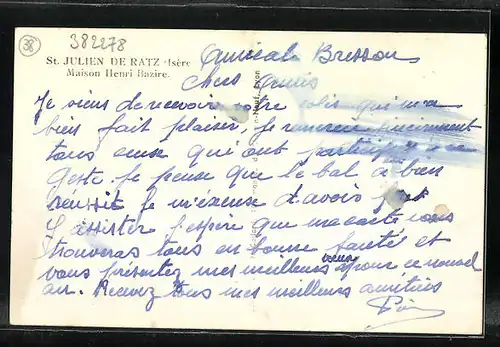 38
382278
St. JULIEN DE RATZ Isère
Maison Henri Bazire.
Amicale Bresson
Chers Amis
Je viens de recevoir votre colis qui m'a
bien fait plaisir, je remercie sincèrement
tous ceux qui ont participé a ce
geste. Je pense que le bal a bien
reussit je m'excuse d'avoir pas
y assister j'espère que ma carte vous
trouveras tous en bonne santé et
vous présentez mes meilleurs vœux pour ce nouvel
an. Recevez tous mes meilleurs amitiés